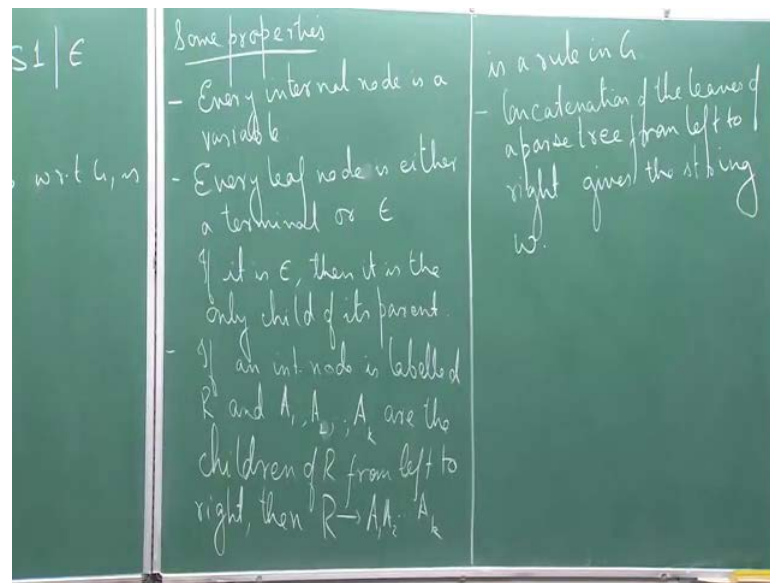 S1 | ε
w.r.t G, is
Some properties
- Every internal node is a
variable
- Every leaf node is either
a terminal or ε
If it is ε, then it is the
only child of its parent.
- If an int. node is labelled
R and A₁, A₂, , Aₖ are the
children of R from left to
right, then R → A₁A₂ .. Aₖ
is a rule in G
- Concatenation of the leaves of
a parse tree from left to
right gives the string
w.